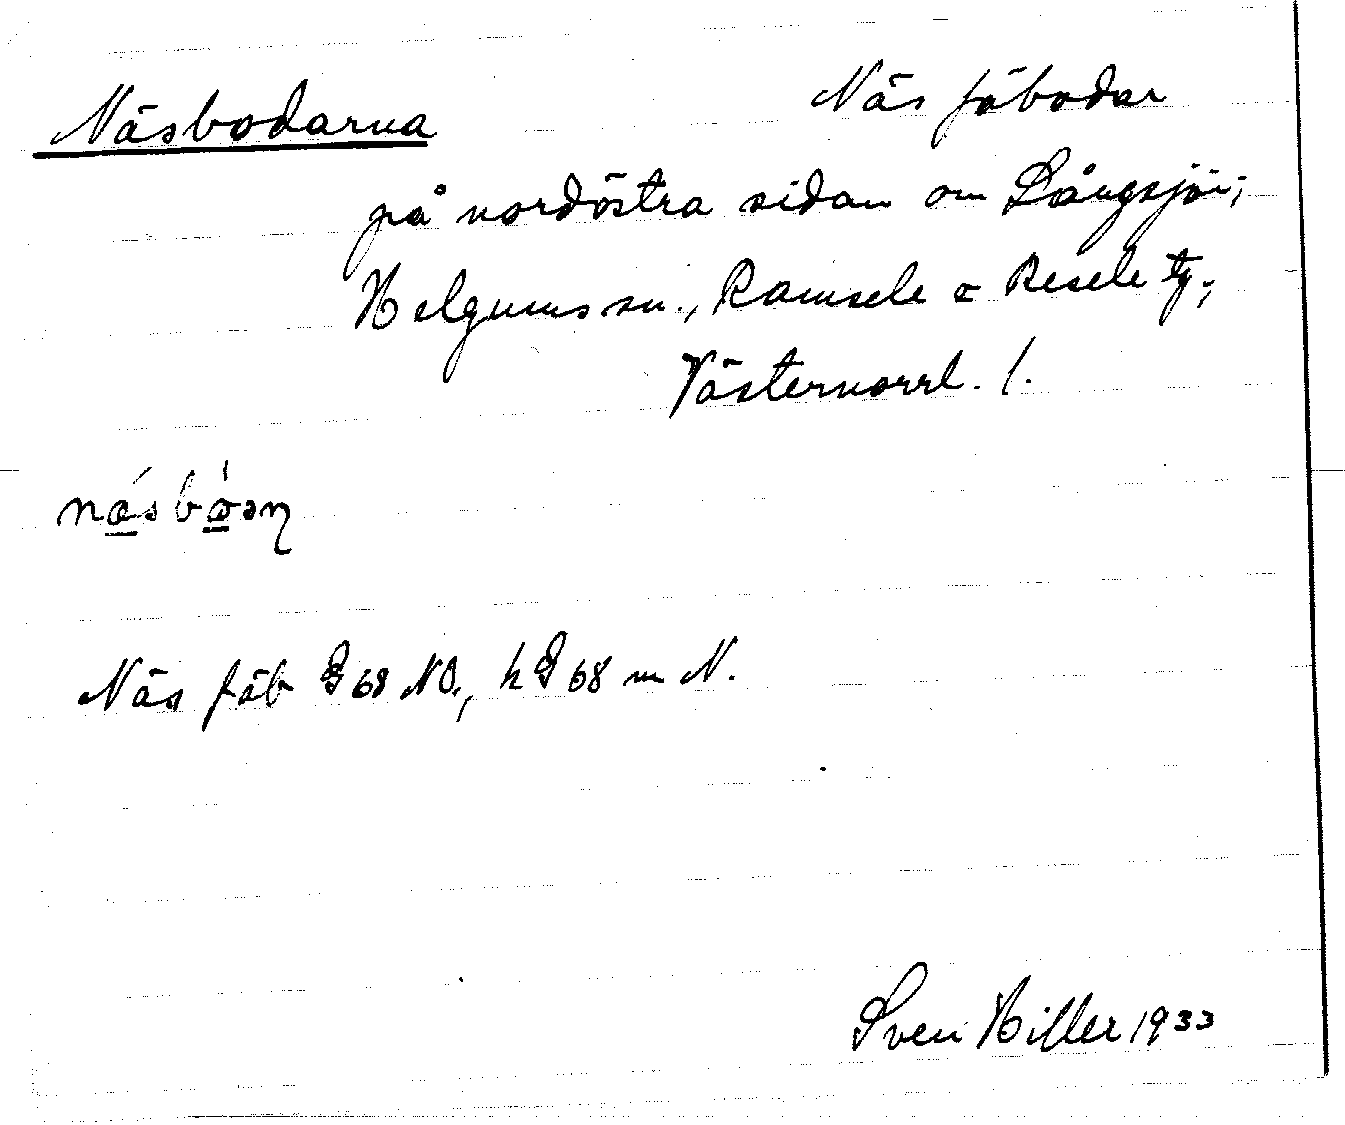 Näsbodarna
Näs fäbodar
på nordöstra sidan om Långsjön;
Helgums sn., Ramsele o Resele tg.;
Västernorrl. l.
Näs fäb G 68 NO., h G 68 m N.
Sven Hiller 1933